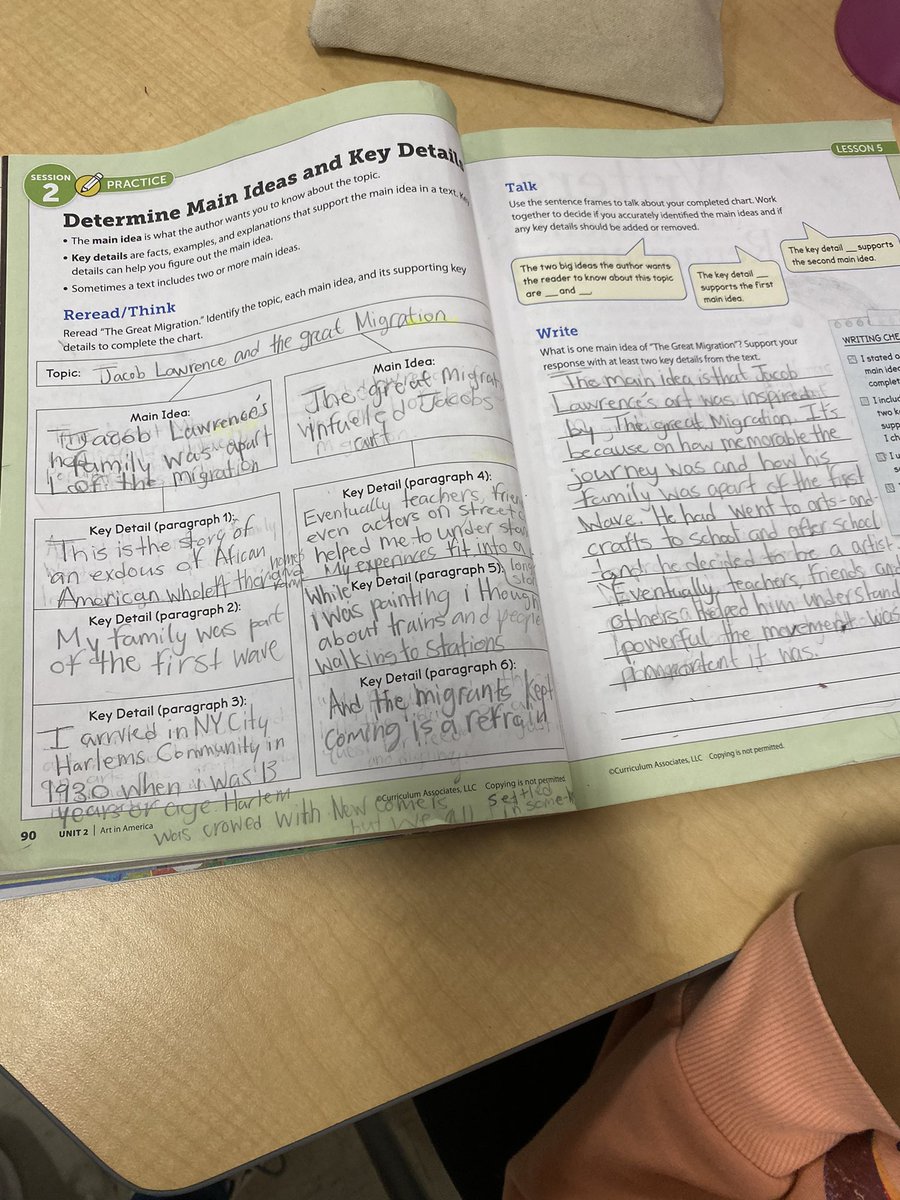 SESSION
2
PRACTICE
Determine Main Ideas and Key Detail
• The main idea is what the author wants you to know about the topic.
• Key details are facts, examples, and explanations that support the main idea in a text. Key
details can help you figure out the main idea.
• Sometimes a text includes two or more main ideas.
Reread/Think
Reread "The Great Migration." Identify the topic, each main idea, and its supporting key
details to complete the chart.
Topic: Jacob Lawrence and the great Migration
Main Idea:
Jacob Lawrence's
family was apart
of the migration
Main Idea:
The great Migrat
Jacobs
art
Key Detail (paragraph 1):
This is the story of
an exdous of African
American
Key Detail (paragraph 2):
My family was part
of the first wave
Key Detail (paragraph 3):
I arrvied in NY City
Harlems Community in
1930 when i was 13
years or age. Harlem
was crowed with New comers
but we all settled
in some
Key Detail (paragraph 4):
Eventually teachers, frien
even actors on street
helped me to under stan
My experinces fit into a
long
Key Detail (paragraph 5):
While
i was painting i though
about trains and people
walking to stations
Key Detail (paragraph 6):
And the migrants kept
coming is a refrain
©Curriculum Associates, LLC Copying is not permitted.
90 UNIT 2 | Art in America
LESSON 5
Talk
Use the sentence frames to talk about your completed chart. Work
together to decide if you accurately identified the main ideas and if
any key details should be added or removed.
The two big ideas the author wants
the reader to know about this topic
are __ and __.
The key detail __
supports the first
main idea.
The key detail __ supports
the second main idea.
Write
What is one main idea of "The Great Migration"? Support your
response with at least two key details from the text.
The main idea is that Jacob
Lawrence's art was inspired
by The great Migration. It's
because on how memorable the
journey was and how his
family was apart of the first
wave. He had went to arts-and-
crafts to school and after school
and he decided to be a artist.
Eventually, teachers, friends and
others helped him understand
powerful the movement was
it was.
WRITING CHE
I stated o
main idea
complet
I includ
two k
supp
I ch
I u
©Curriculum Associates, LLC Copying is not permitted.